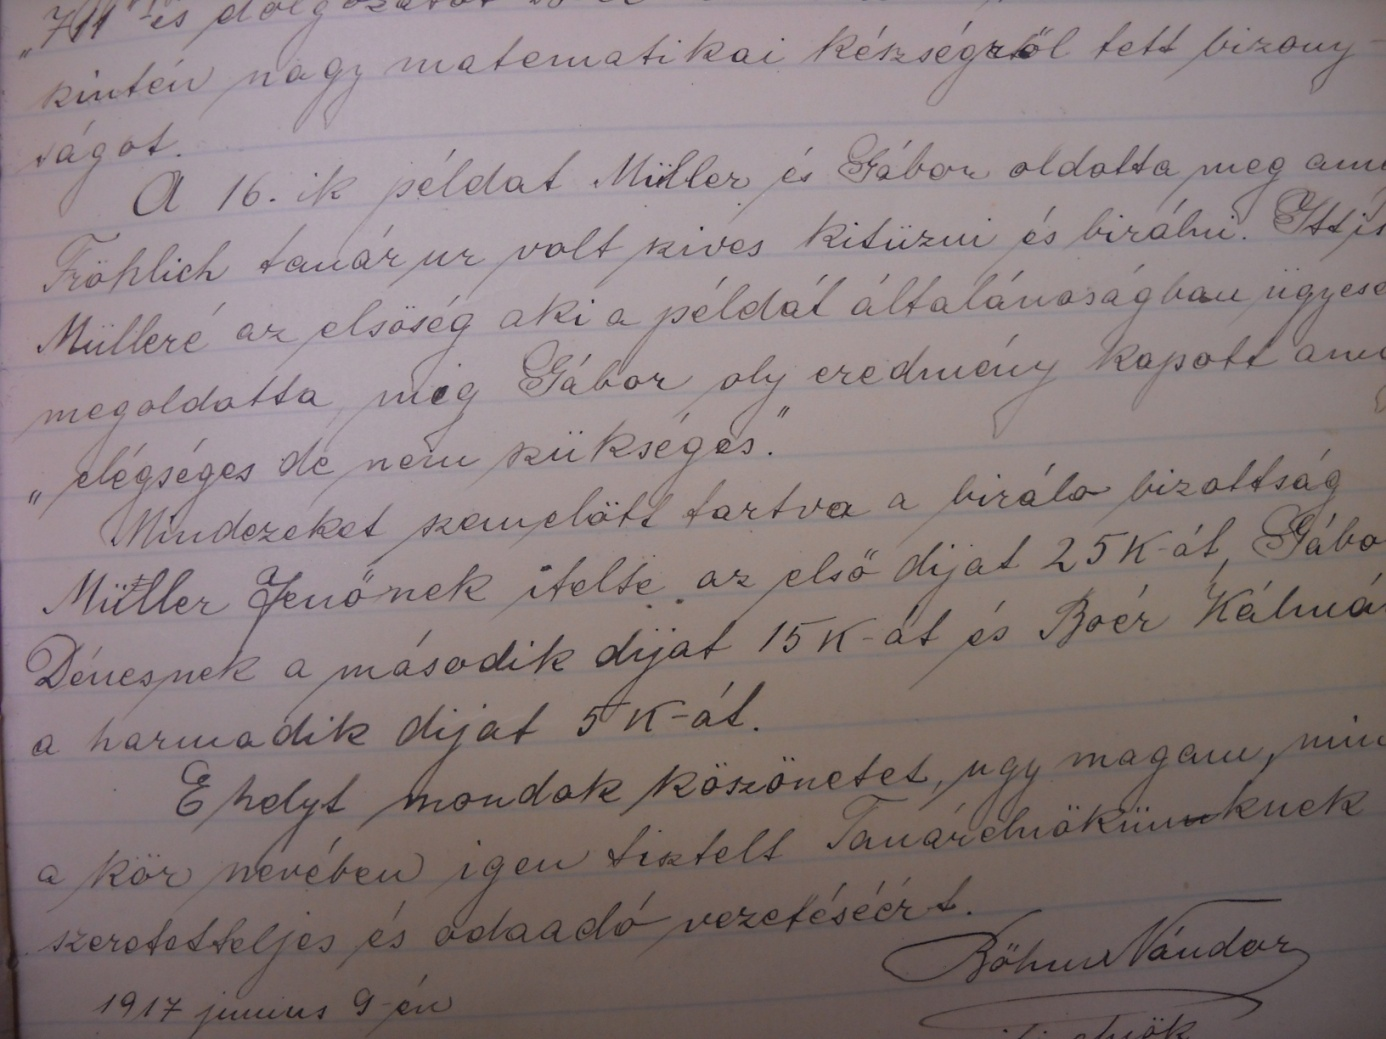 "711" és dolgozatot
szintén nagy matematikai készségről tett bizony-
ságot.
A 16.-ik példat Müller és Gábor oldotta meg ami
Fröhlich tanár ur volt szives kitüzni és birálni. Itt is
Mülleré az elsöség aki a példát általánosságban ügyese
megoldotta, mig Gábor oly eredmény kapott ami
„elégséges de nem szükséges".
Mindezeket szemelött tartva a biráló bizottság
Müller Jenőnek itelte az első dijat 25K-át, Gábo
Dénesnek a második dijat 15K-át és Boér Kálmá
a harmadik dijat 5K-át.
E helyt mondok köszönetet, ugy magam, min
a kör nevében igen tisztelt Tanárelnökünknek
szeretetteljes és odaadó vezetéséért.
Böhm Nándor
1917 junius 9-én
ifj. elnök